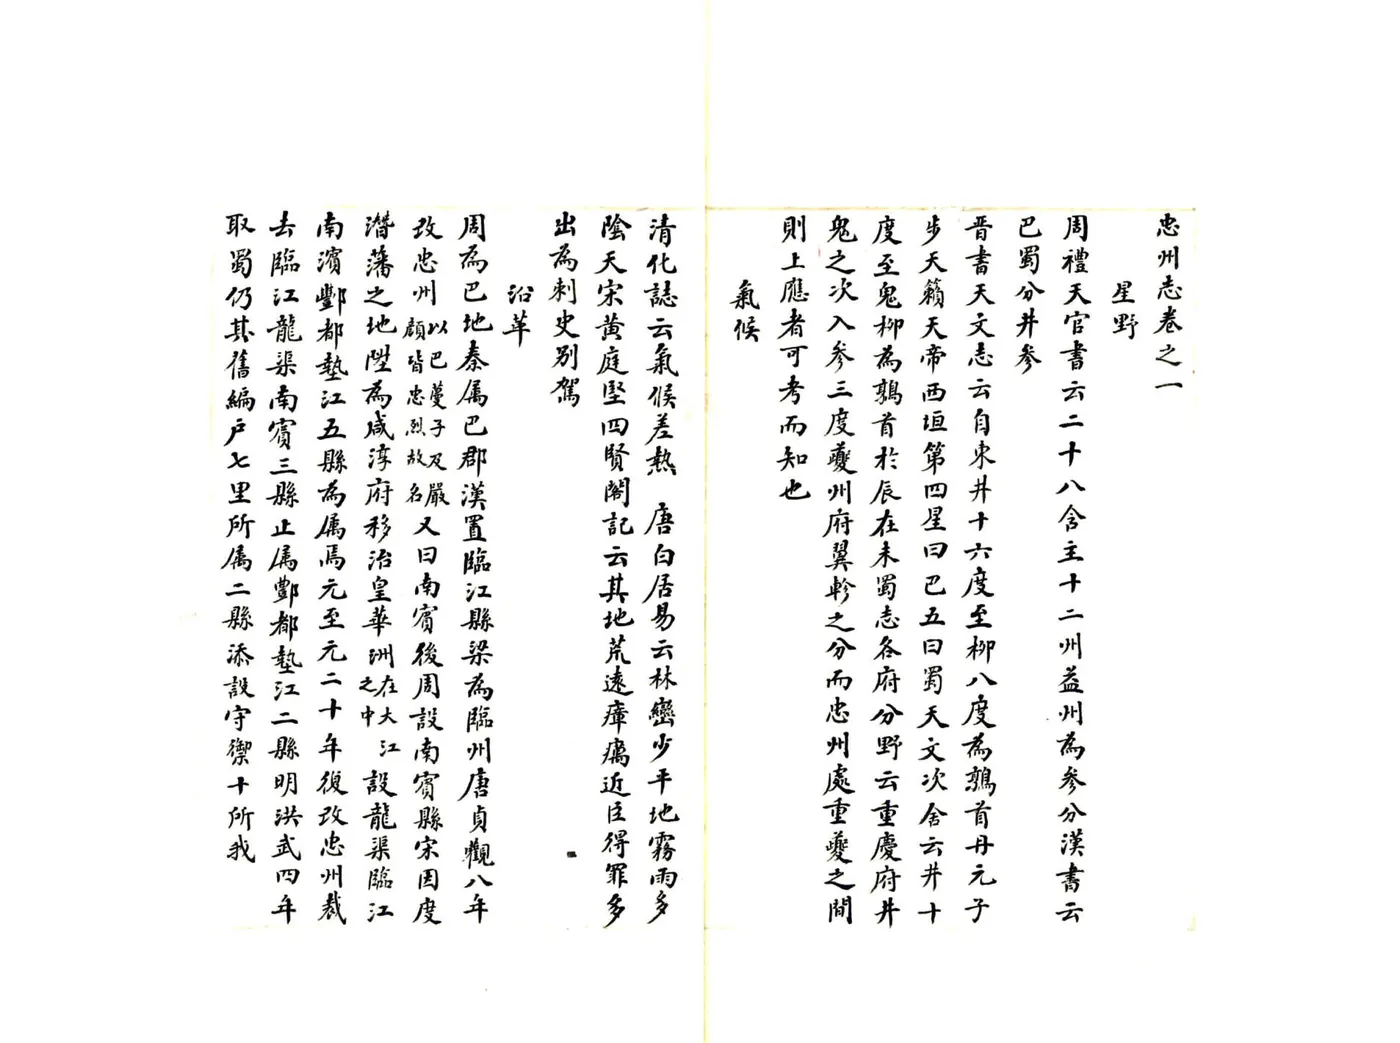 忠州志卷之一
星野
周禮天官書云二十八舍主十二州益州為參分漢書云
巴蜀分井參
晉書天文志云自東井十六度至柳八度為鶉首丹元子
步天籟天帝西垣第四星曰巴五曰蜀天文次舍云井十
度至鬼柳為鶉首於辰在未蜀志各府分野云重慶府井
鬼之次入參三度夔州府翼軫之分而忠州處重夔之間
則上應者可考而知也
氣候
清化誌云氣候差熱 唐白居易云林巒少平地霧雨多
陰天宋黃庭堅四賢閣記云其地荒遠瘴癘近臣得罪多
出為刺史別駕
沿革
周為巴地秦属巴郡漢置臨江縣梁為臨州唐貞觀八年
改忠州以巴蔓子及嚴顏皆忠烈故名又曰南賓後周設南賓縣宋因度
濳藩之地陞為咸淳府移治皇華洲在大江之中設龍渠臨江
南濱酆都墊江五縣為属焉元至元二十年復改忠州裁
去臨江龍渠南賓三縣止属酆都墊江二縣明洪武四年
取蜀仍其舊編户七里所属二縣添設守禦十所我